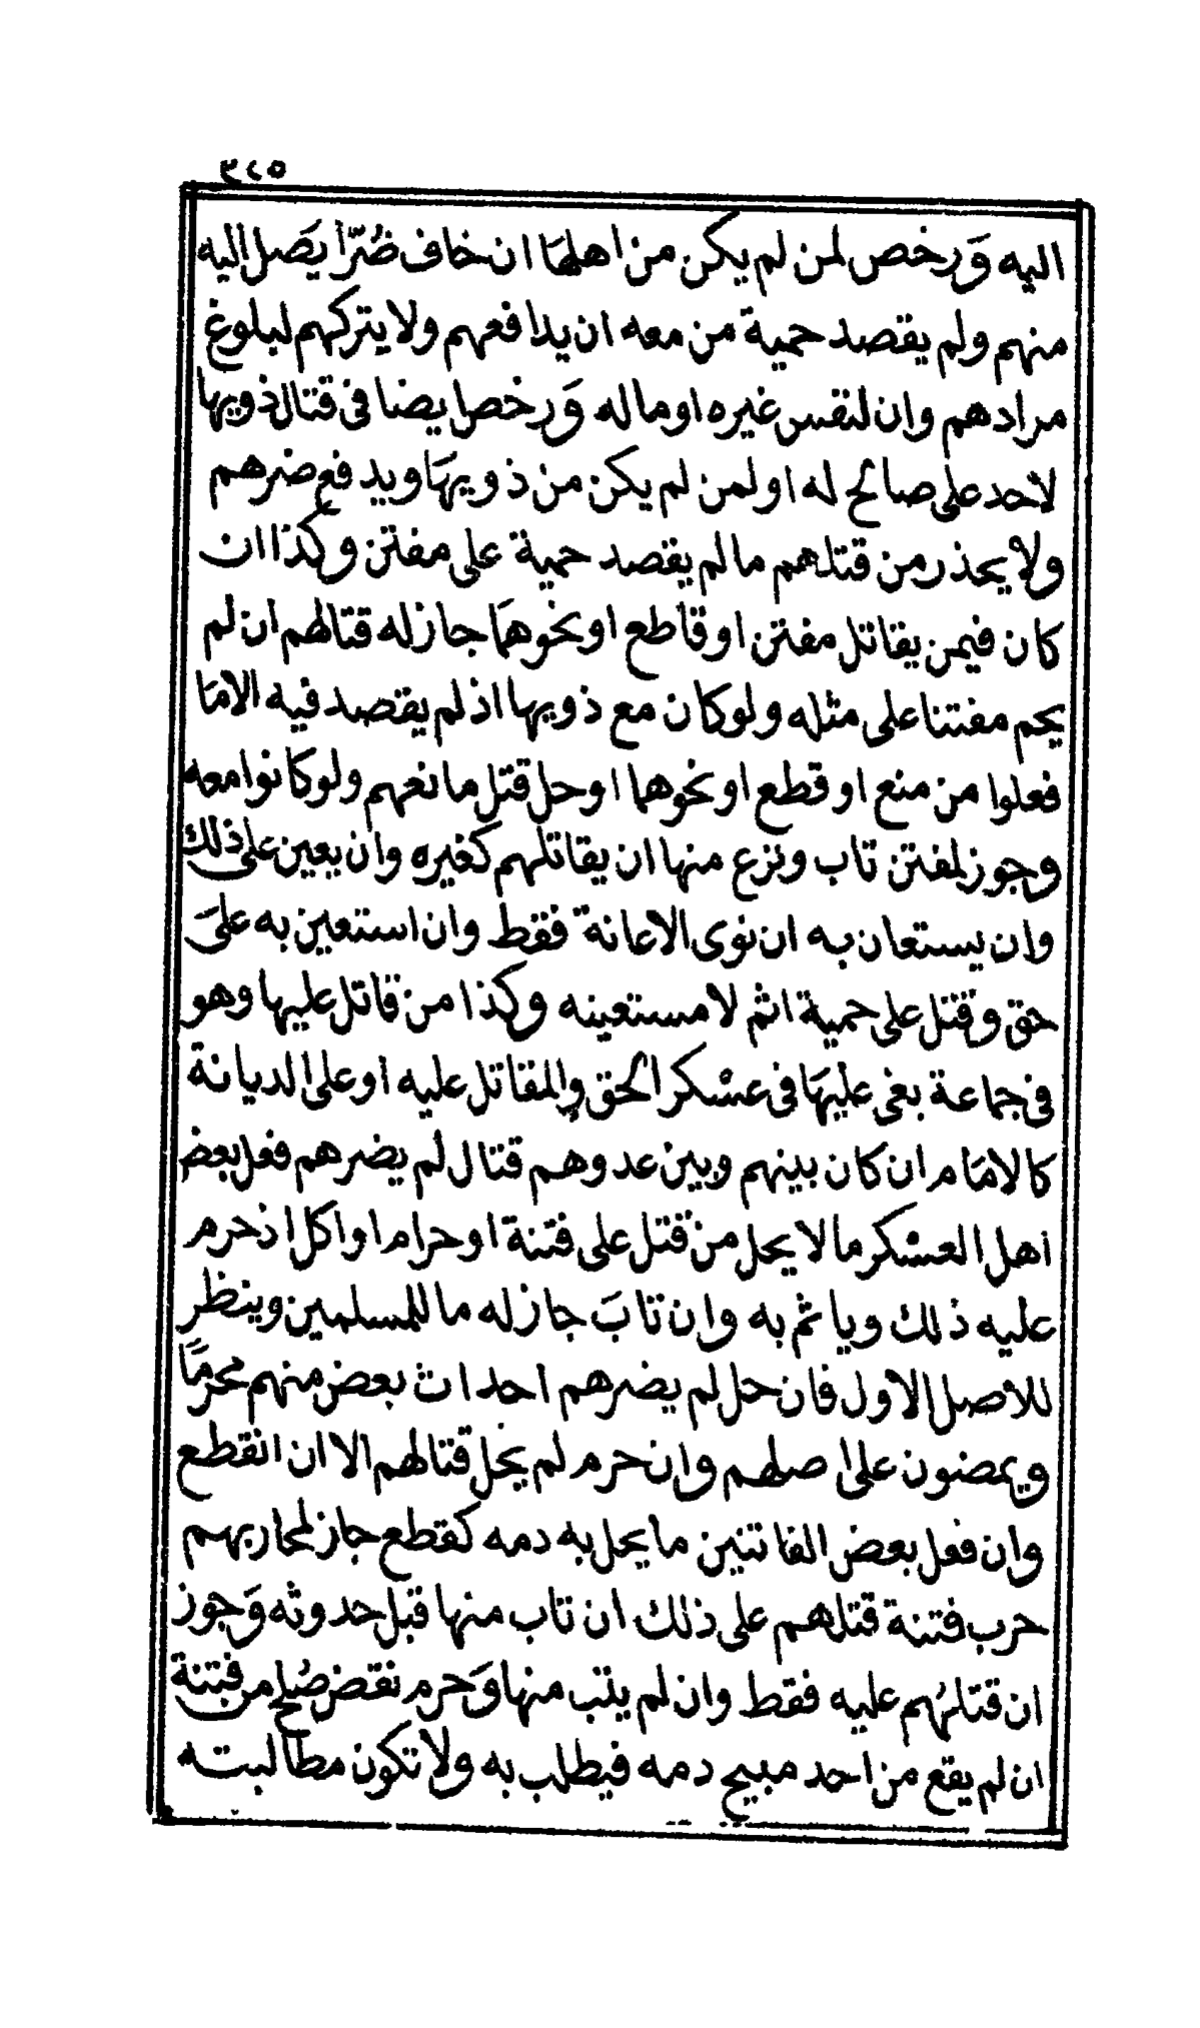 ٣٢٥
اليه وَرخص لمن لم يكن من اهلهَا ان خاف ضُرّا يَصل اليه
منهم ولم يقصد حمية من معه ان يدافعهم ولا يتركهم لبلوغ
مرادهم وان لنفس غيره او ماله وَرخص ايضا فى قتال ذويها
لاحد على صالح له او لمن لم يكن من ذويهَا ويدفع ضرهم
ولا يحذر من قتلهم ما لم يقصد حمية على مفتن وكذا ان
كان فيمن يقاتل مفتن او قاطع او نحوهمَا جاز له قتالهم ان لم
يحم مفتنا على مثله ولو كان مع ذويها اذ لم يقصد فيه الا مَا
فعلوا من منع او قطع او نحوهما او حل قتل مانعهم ولو كانوا معه
وجوز لمفتن تاب ونزع منها ان يقاتلهم كغيره وان يعين على ذلك
وان يستعان به ان نوى الاعانة فقط وان استعين به علىَ
حق وقتل على حمية اثم لا مستعينه وكذا من قاتل عليها وهو
فى جماعة بغى عليهَا فى عسكر الحق والمقاتل عليه او على الديانة
كالامَام ان كان بينهم وبين عدوهم قتال لم يضرهم فعل بعض
اهل العسكر ما لا يحل من قتل على فتنة او حرام او اكل اذ حرم
عليه ذلك وياثم به وان تابَ جاز له ما للمسلمين وينظر
للاصل الاول فان حل لم يضرهم احداث بعض منهم محرمًا
ويمضون على اصلهم وان حرم لم يحل قتالهم الا ان انقطع
وان فعل بعض الفاتنين ما يحل به دمه كقطع جاز لمحاربهم
حرب فتنة قتلهم على ذلك ان تاب منها قبل حدوثه وَجوز
ان قتلهُم عليه فقط وان لم يتب منها وَحرم نقض صُلح من فتنة
ان لم يقع من احد مبيح دمه فيطلب به ولا تكون مطالبته